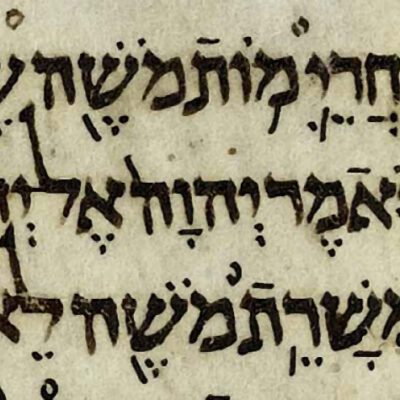 חֲרֵי מוֹת מֹשֶׁה
אמֶר יְהוָה אֶל יְה
מְשָׁרֵת מֹשֶׁה לֵא